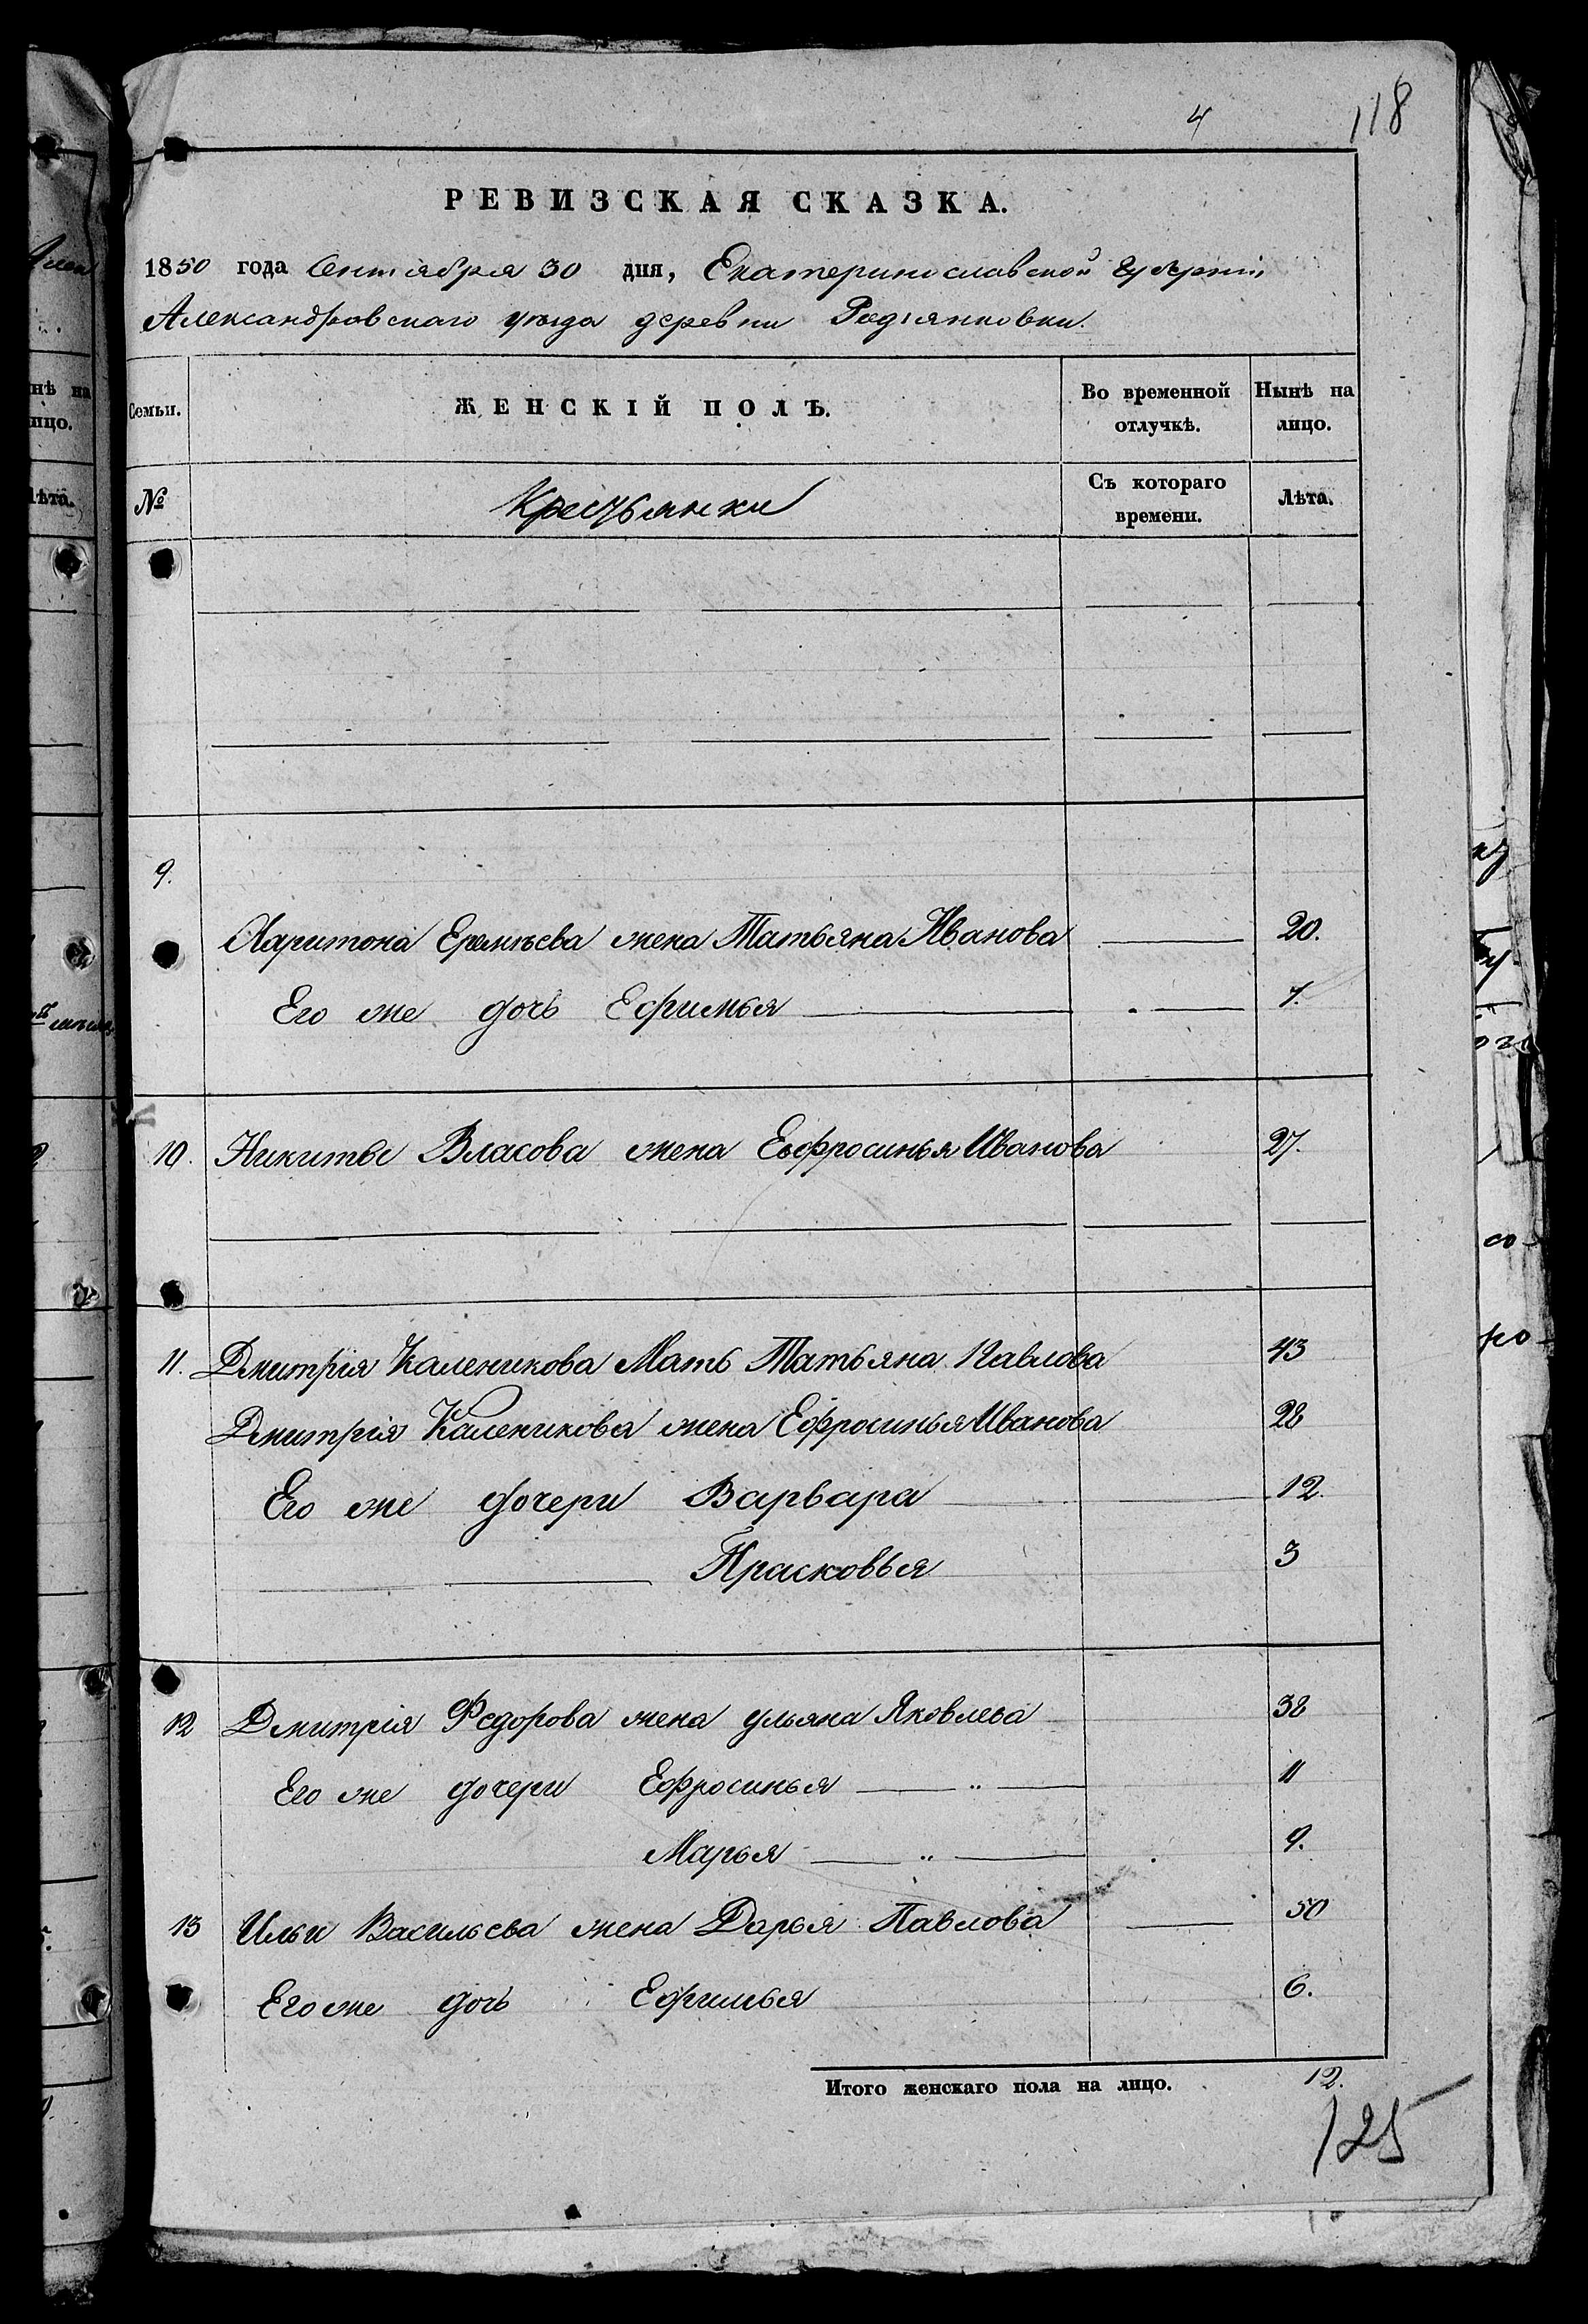 4
118
РЕВИЗСКАЯ СКАЗКА.
1850 года Сентября 30 дня, Екатеринославской Губерніи
Александровскаго уѣзда деревни Родзянковки.
Семьи. ЖЕНСКІЙ ПОЛЪ. Во временной отлучкѣ. Нынѣ на лицо.
№ Крестьянки Съ котораго времени. Лѣта.
9.
Харитона Еремѣева жена Татьяна Иванова 20.
Его же дочь Ефимья 1.
10. Никиты Власова жена Евфросинья Иванова 27.
11. Дмитрія Каленикова Мать Татьяна Павлова 43
Дмитрія Каленикова жена Ефросинья Иванова 28
Его же дочери Варвара 12.
Прасковья 3
12 Дмитрія Федорова жена Ульяна Яковлева 38
Его же дочери Ефросинья 11
Марья 9.
13 Ильи Васильева жена Дарья Павлова 50
Его же дочь Ефимья 6.
Итого женскаго пола на лицо. 12.
125